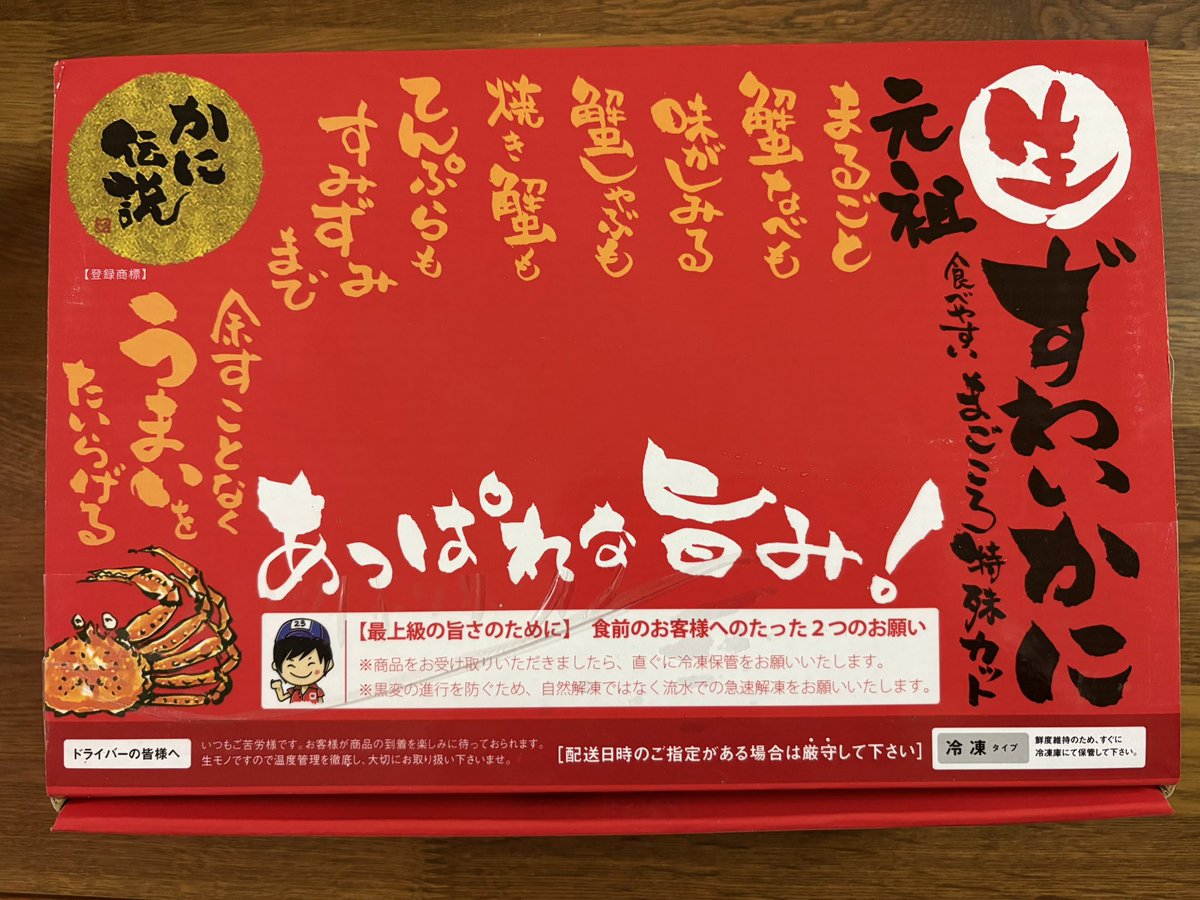 生
ずわいかに
元祖
食べやすい まごころ特殊カット
まるごと
蟹なべも
味がしみる
蟹しゃぶも
焼き蟹も
てんぷらも
すみずみ
まで
かに
伝説
【登録商標】
余すことなく
うまいを
たいらげる
あっぱれな旨み!
23
【最上級の旨さのために】 食前のお客様へのたった2つのお願い
※商品をお受け取りいただきましたら、直ぐに冷凍保管をお願いいたします。
※黒変の進行を防ぐため、自然解凍ではなく流水での急速解凍をお願いいたします。
ドライバーの皆様へ
いつもご苦労様です。お客様が商品の到着を楽しみに待っておられます。
生モノですので温度管理を徹底し、大切にお取り扱い下さいませ。
[配送日時のご指定がある場合は厳守して下さい]
冷凍タイプ
鮮度維持のため、すぐに
冷凍庫にて保管して下さい。